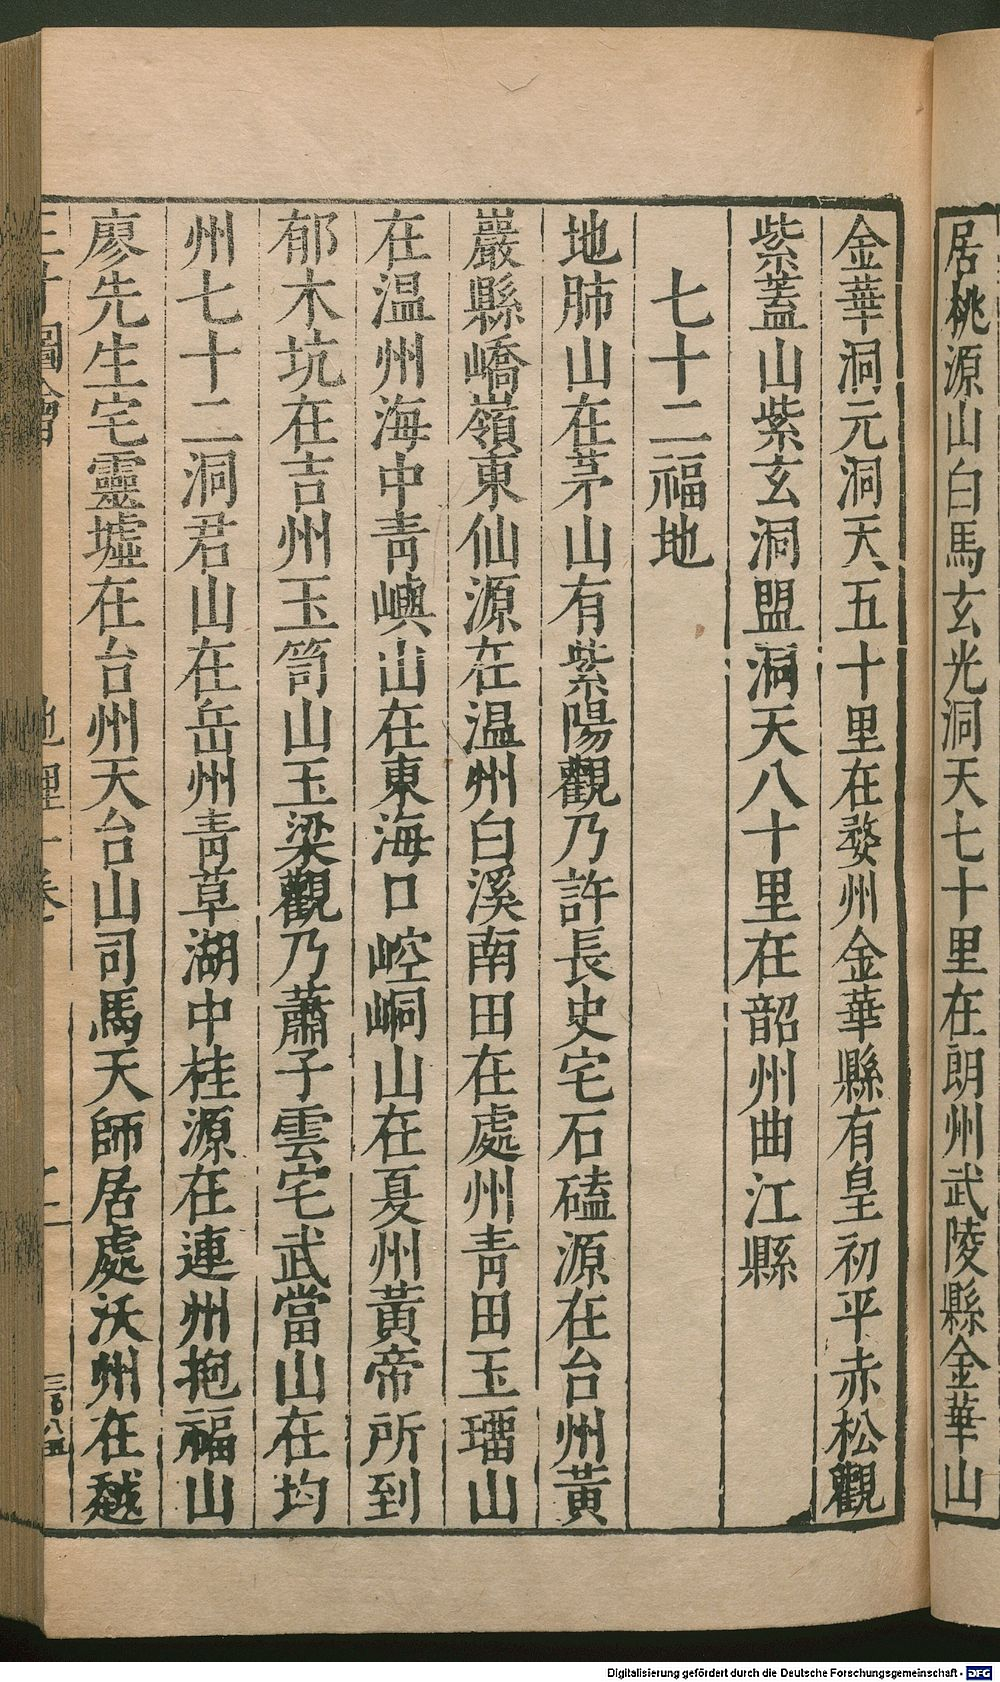 居桃源山白馬玄光洞天七十里在朗州武陵縣金華山
金華洞元洞天五十里在婺州金華縣有皇初平赤松觀
紫蓋山紫玄洞盟洞天八十里在韶州曲江縣
七十二福地
地肺山在茅山有紫陽觀乃許長史宅石磕源在台州黃
巖縣嶠嶺東仙源在温州白溪南田在處州青田玉瑠山
在温州海中青嶼山在東海口崆峒山在夏州黃帝所到
郁木坑在吉州玉笥山玉梁觀乃蕭子雲宅武當山在均
州七十二洞君山在岳州青草湖中桂源在連州抱福山
廖先生宅靈墟在台州天台山司馬天師居處沃州在越
三才圖會 地理十卷 十二
Digitalisierung gefördert durch die Deutsche Forschungsgemeinschaft - DFG